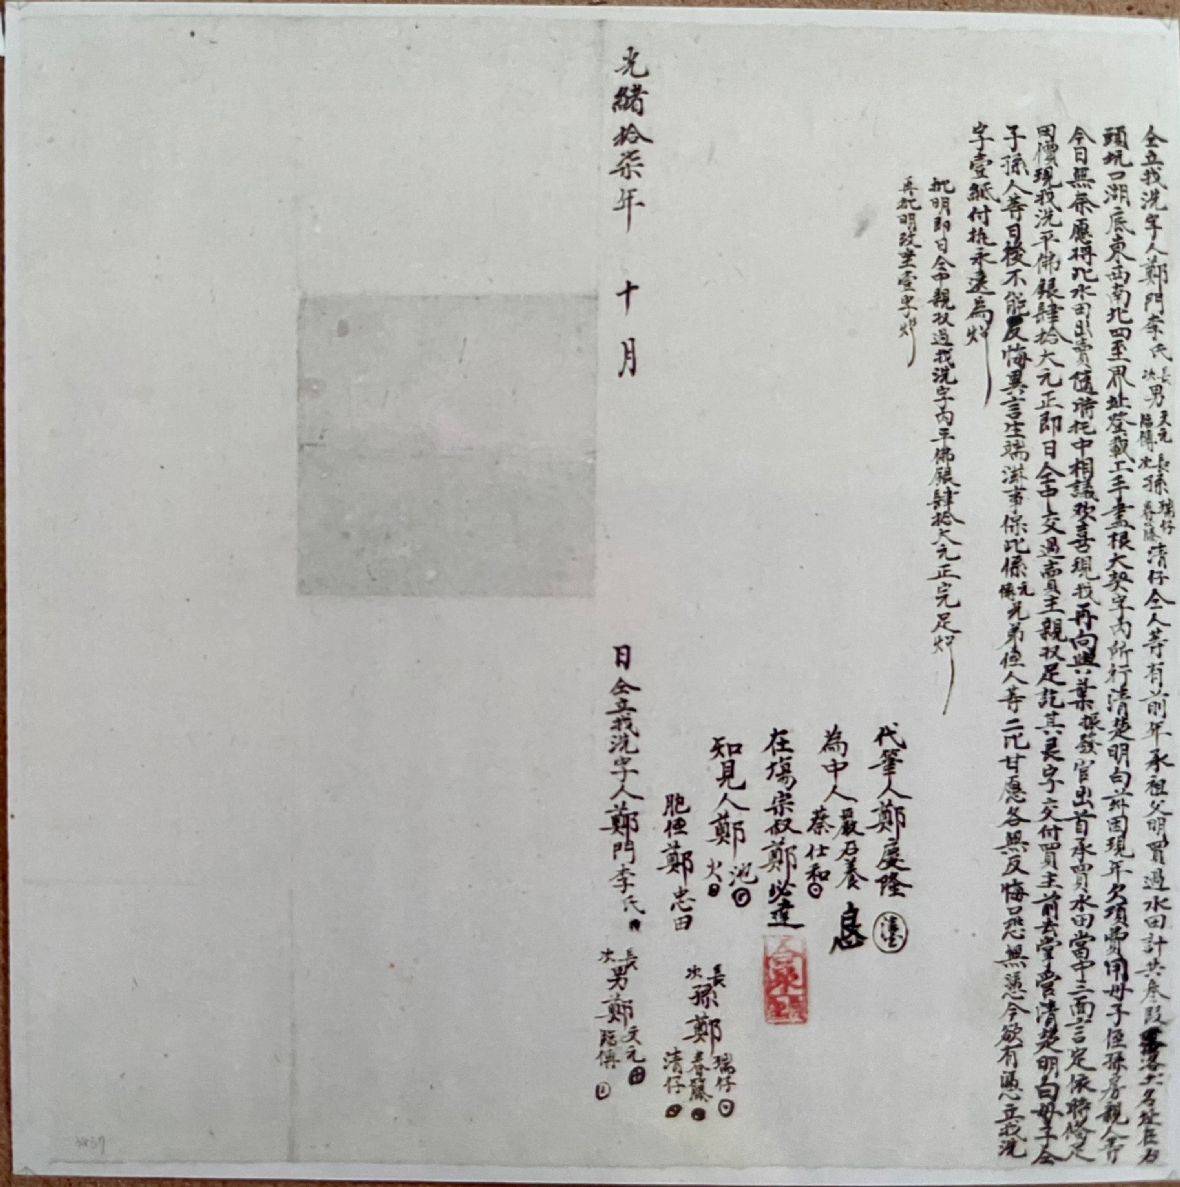 仝立找洗字人鄭門李氏長次男天元臨傳長次孫瑞仔春藤清仔仝人等有前年承祖父明買過水田計共叁段落土名址在石
頭坑口湖底東西南北四至界址登載上手書根大契字內所行清楚明白前因現年欠項費用母子侄孫房親人等
今日無奈愿將此水田出賣隨時托中相議欢喜現找再向與葉振發官出首承買水田當中三面言定依時修足
因價現找洗平佛銀肆拾大元正即日仝中交過賣主親收足訖其良字交付買主前去掌管清楚明白母子仝
子孫人等日後不能反悔異言生端滋事保此係元傳兄弟侄人等二比甘愿各無反悔口恐無憑今欲有憑立找洗
字壹紙付执永遠為炤
批明即日仝中親收過找洗字內平佛銀肆拾大元正完足炤
再批明改至壹字炤
代筆人鄭慶隆
為中人嚴石養
蔡仕和
在塲宗叔鄭必達
知見人鄭池
火
胞侄鄭忠田
長次孫鄭瑞仔
春藤
清仔
光緒拾柒年 十月 日仝立找洗字人鄭門李氏
長次男鄭天元
臨傳